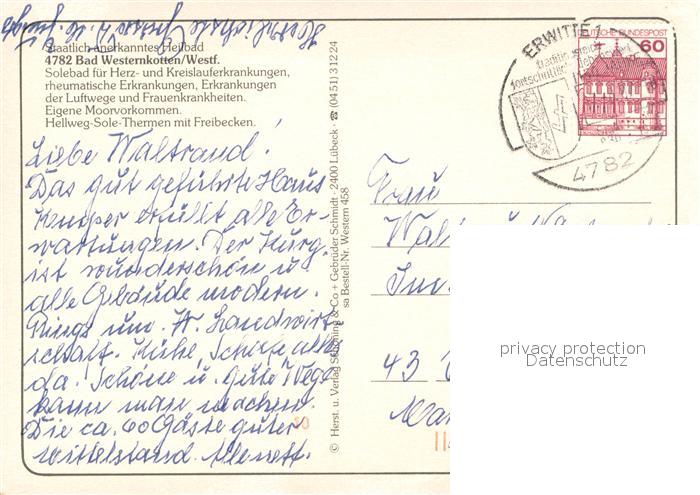 Staatlich anerkanntes Heilbad
4782 Bad Westernkotten/Westf.
Solebad für Herz- und Kreislauferkrankungen,
rheumatische Erkrankungen, Erkrankungen
der Luftwege und Frauenkrankheiten.
Eigene Moorvorkommen.
Hellweg-Sole-Thermen mit Freibecken.
Liebe Waltraud!
Das gut geführte Haus
Kemper erfüllt alle Er-
wartungen. Der Kurg.
ist wunderschön u.
alle Gebäude modern.
Rings um. Landwirt-
schaft. Kühe, Schafe alles
da. Schöne u. gute Wege
kann man machen.
Die ca. 60 Gäste guter
Mittelstand. Alle nett.
Herzlichste Grüsse
© Herst. u. Verlag Schöning & Co + Gebrüder Schmidt · 2400 Lübeck · ☎ (0451) 31224
sa Bestell-Nr. Western 458
ERWITTE 1
4782
DEUTSCHE BUNDESPOST
60
Frau
43
privacy protection
Datenschutz